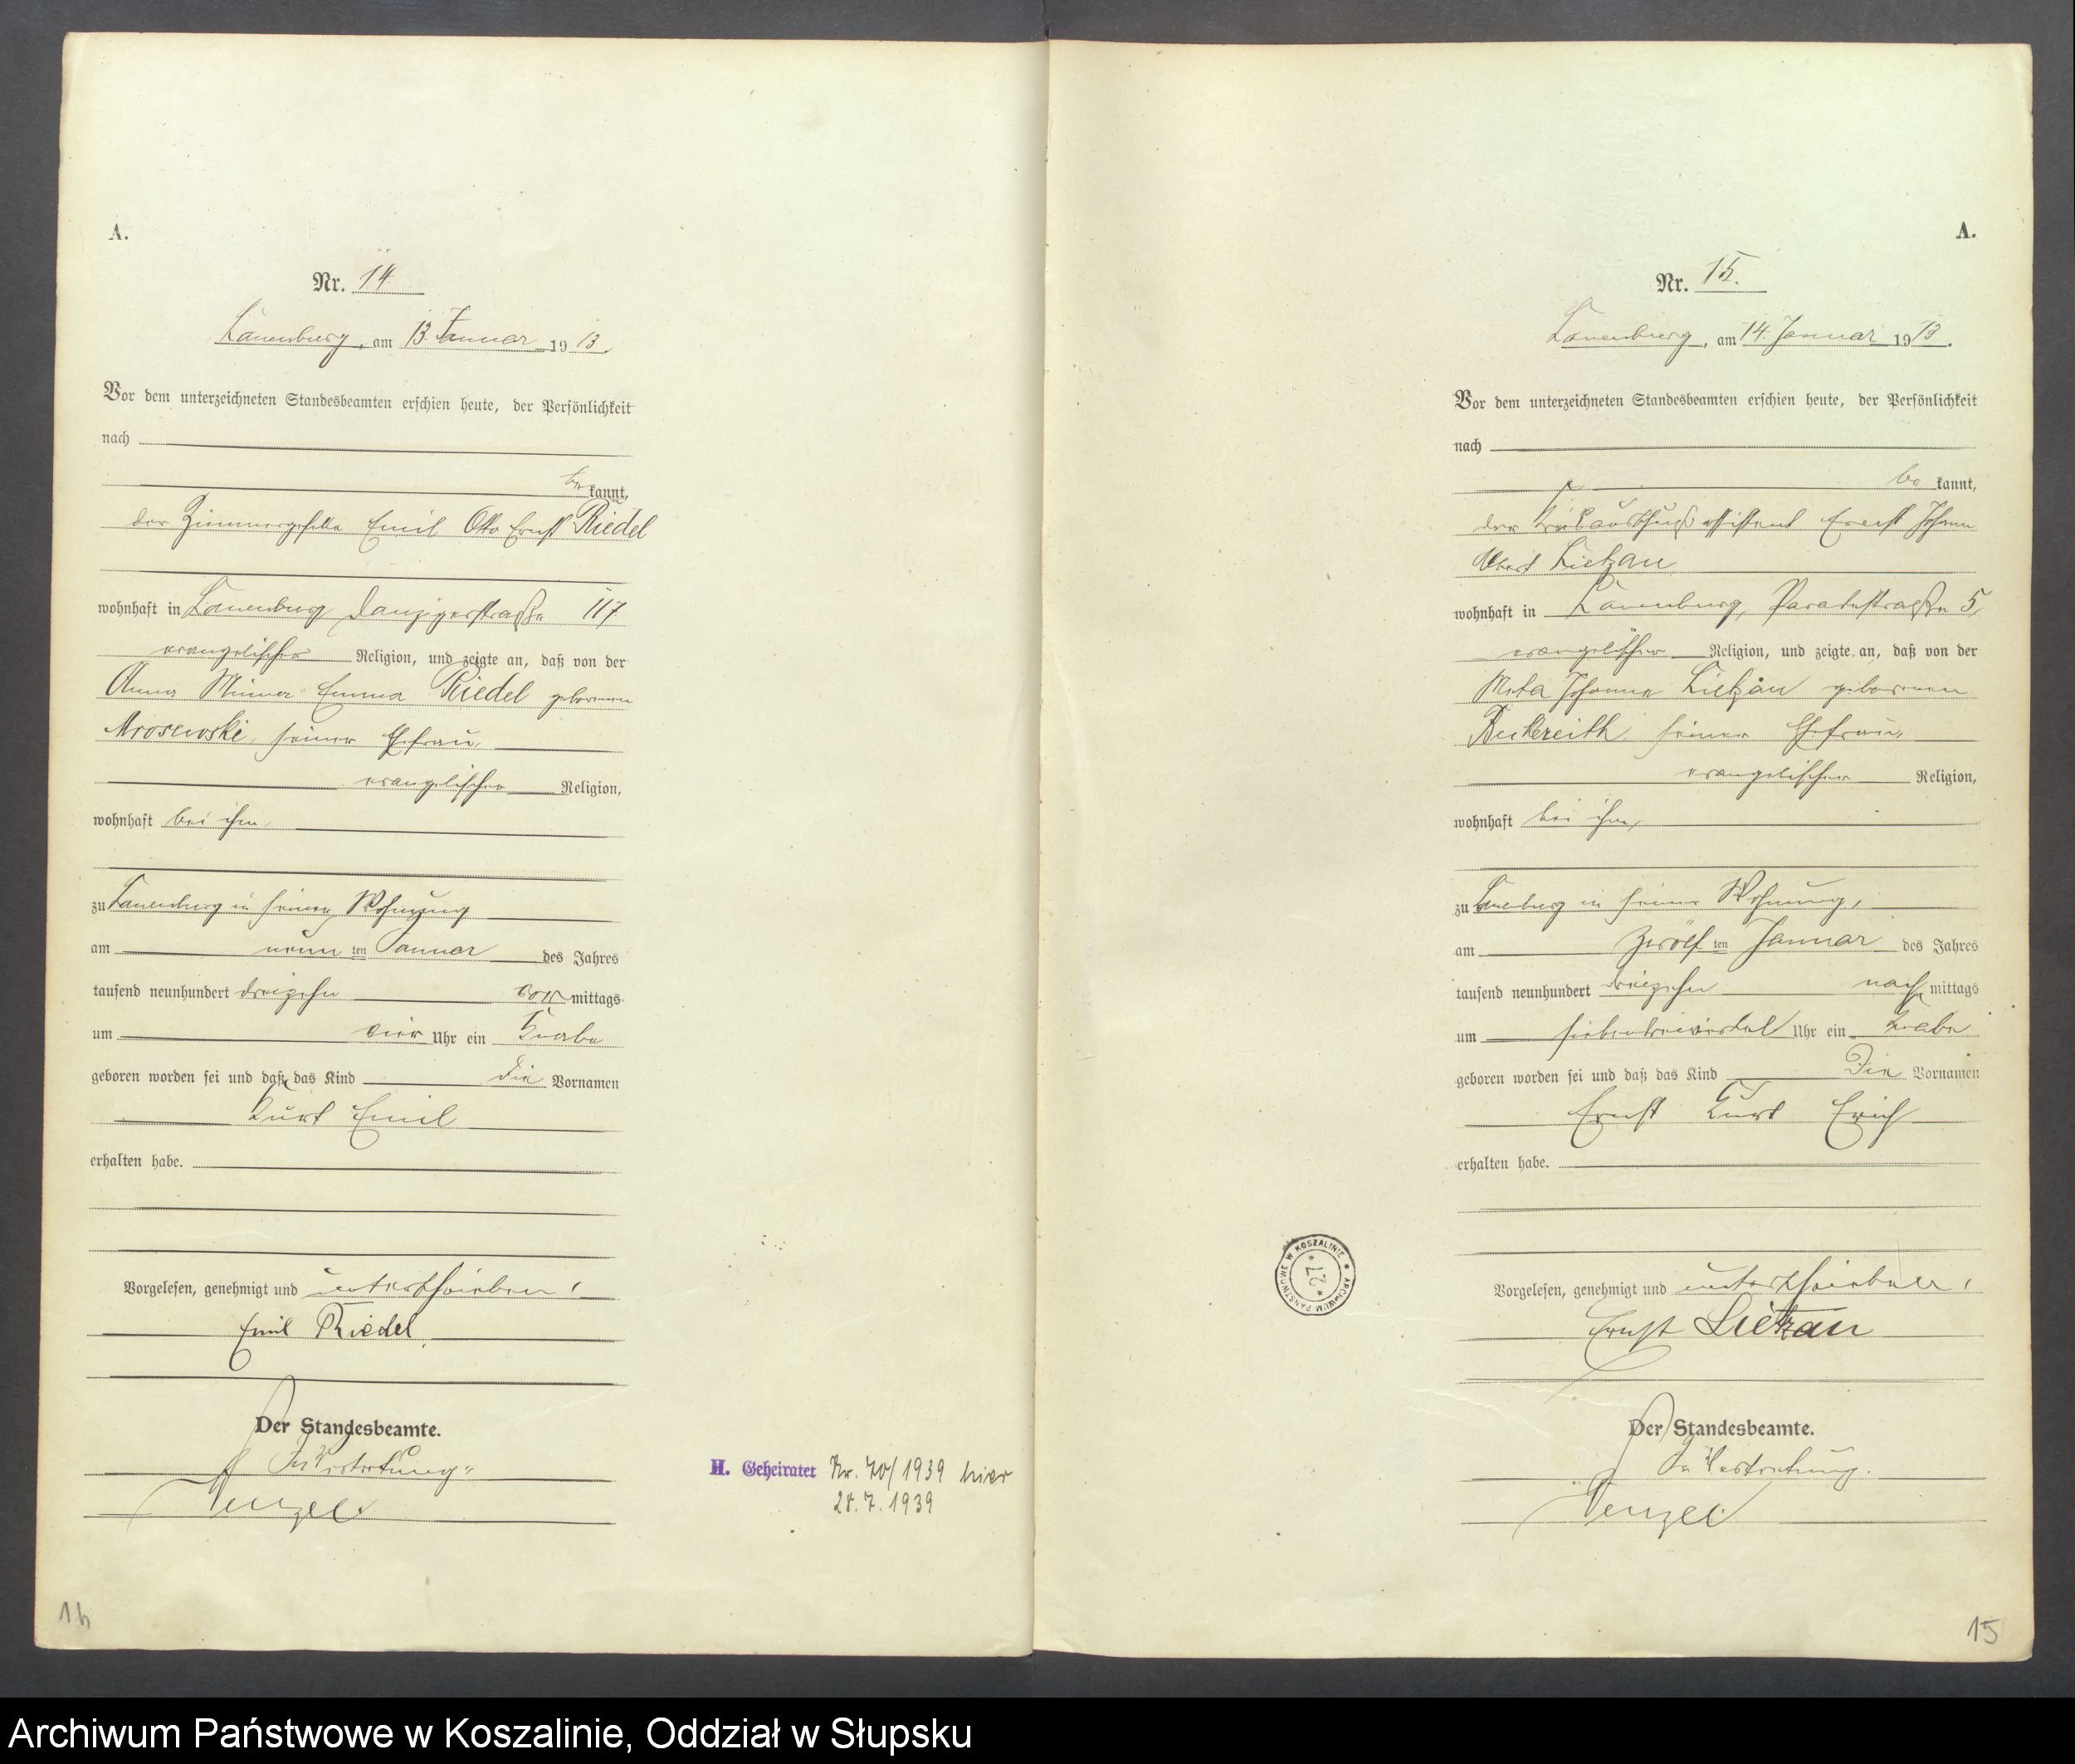 A.
Nr. 14
Lauenburg, am 13. Januar 1913.
Vor dem unterzeichneten Standesbeamten erschien heute, der Persönlichkeit
nach
be kannt,
der Zimmergeselle Emil Otto Ernst Riedel
wohnhaft in Lauenburg Danzigerstraße 117
evangelischer Religion, und zeigte an, daß von der
Anna Minna Emma Riedel geborenen
Mrosewski, seiner Ehefrau,
evangelischer Religion,
wohnhaft bei ihm,
zu Lauenburg in seiner Wohnung
am neun ten Januar des Jahres
tausend neunhundert dreizehn vor mittags
um vier Uhr ein Knabe
geboren worden sei und daß das Kind die Vornamen
Kurt Emil
erhalten habe.
Vorgelesen, genehmigt und unterschrieben,
Emil Riedel
Der Standesbeamte.
In Vertretung.
Wenzel
H. Geheiratet Nr. 70/1939 hier
28.7.1939
14
A.
Nr. 15.
Lauenburg, am 14. Januar 1913.
Vor dem unterzeichneten Standesbeamten erschien heute, der Persönlichkeit
nach
be kannt,
der Kreisausschußassistent Ernst Johann
Albert Lietzau
wohnhaft in Lauenburg, Paradestraße 5,
evangelischer Religion, und zeigte an, daß von der
Meta Johanna Lietzau geborenen
seiner Ehefrau,
evangelischer Religion,
wohnhaft bei ihm,
zu Lauenburg in seiner Wohnung,
am zwölf ten Januar des Jahres
tausend neunhundert dreizehn nach mittags
um siebendreiviertel Uhr ein Knabe
geboren worden sei und daß das Kind die Vornamen
Ernst Kurt Erich
erhalten habe.
Vorgelesen, genehmigt und unterschrieben,
Ernst Lietzau
Der Standesbeamte.
In Vertretung.
Wenzel
ARCHIWUM PAŃSTWOWE W KOSZALINIE
* 27 *
15
Archiwum Państwowe w Koszalinie, Oddział w Słupsku